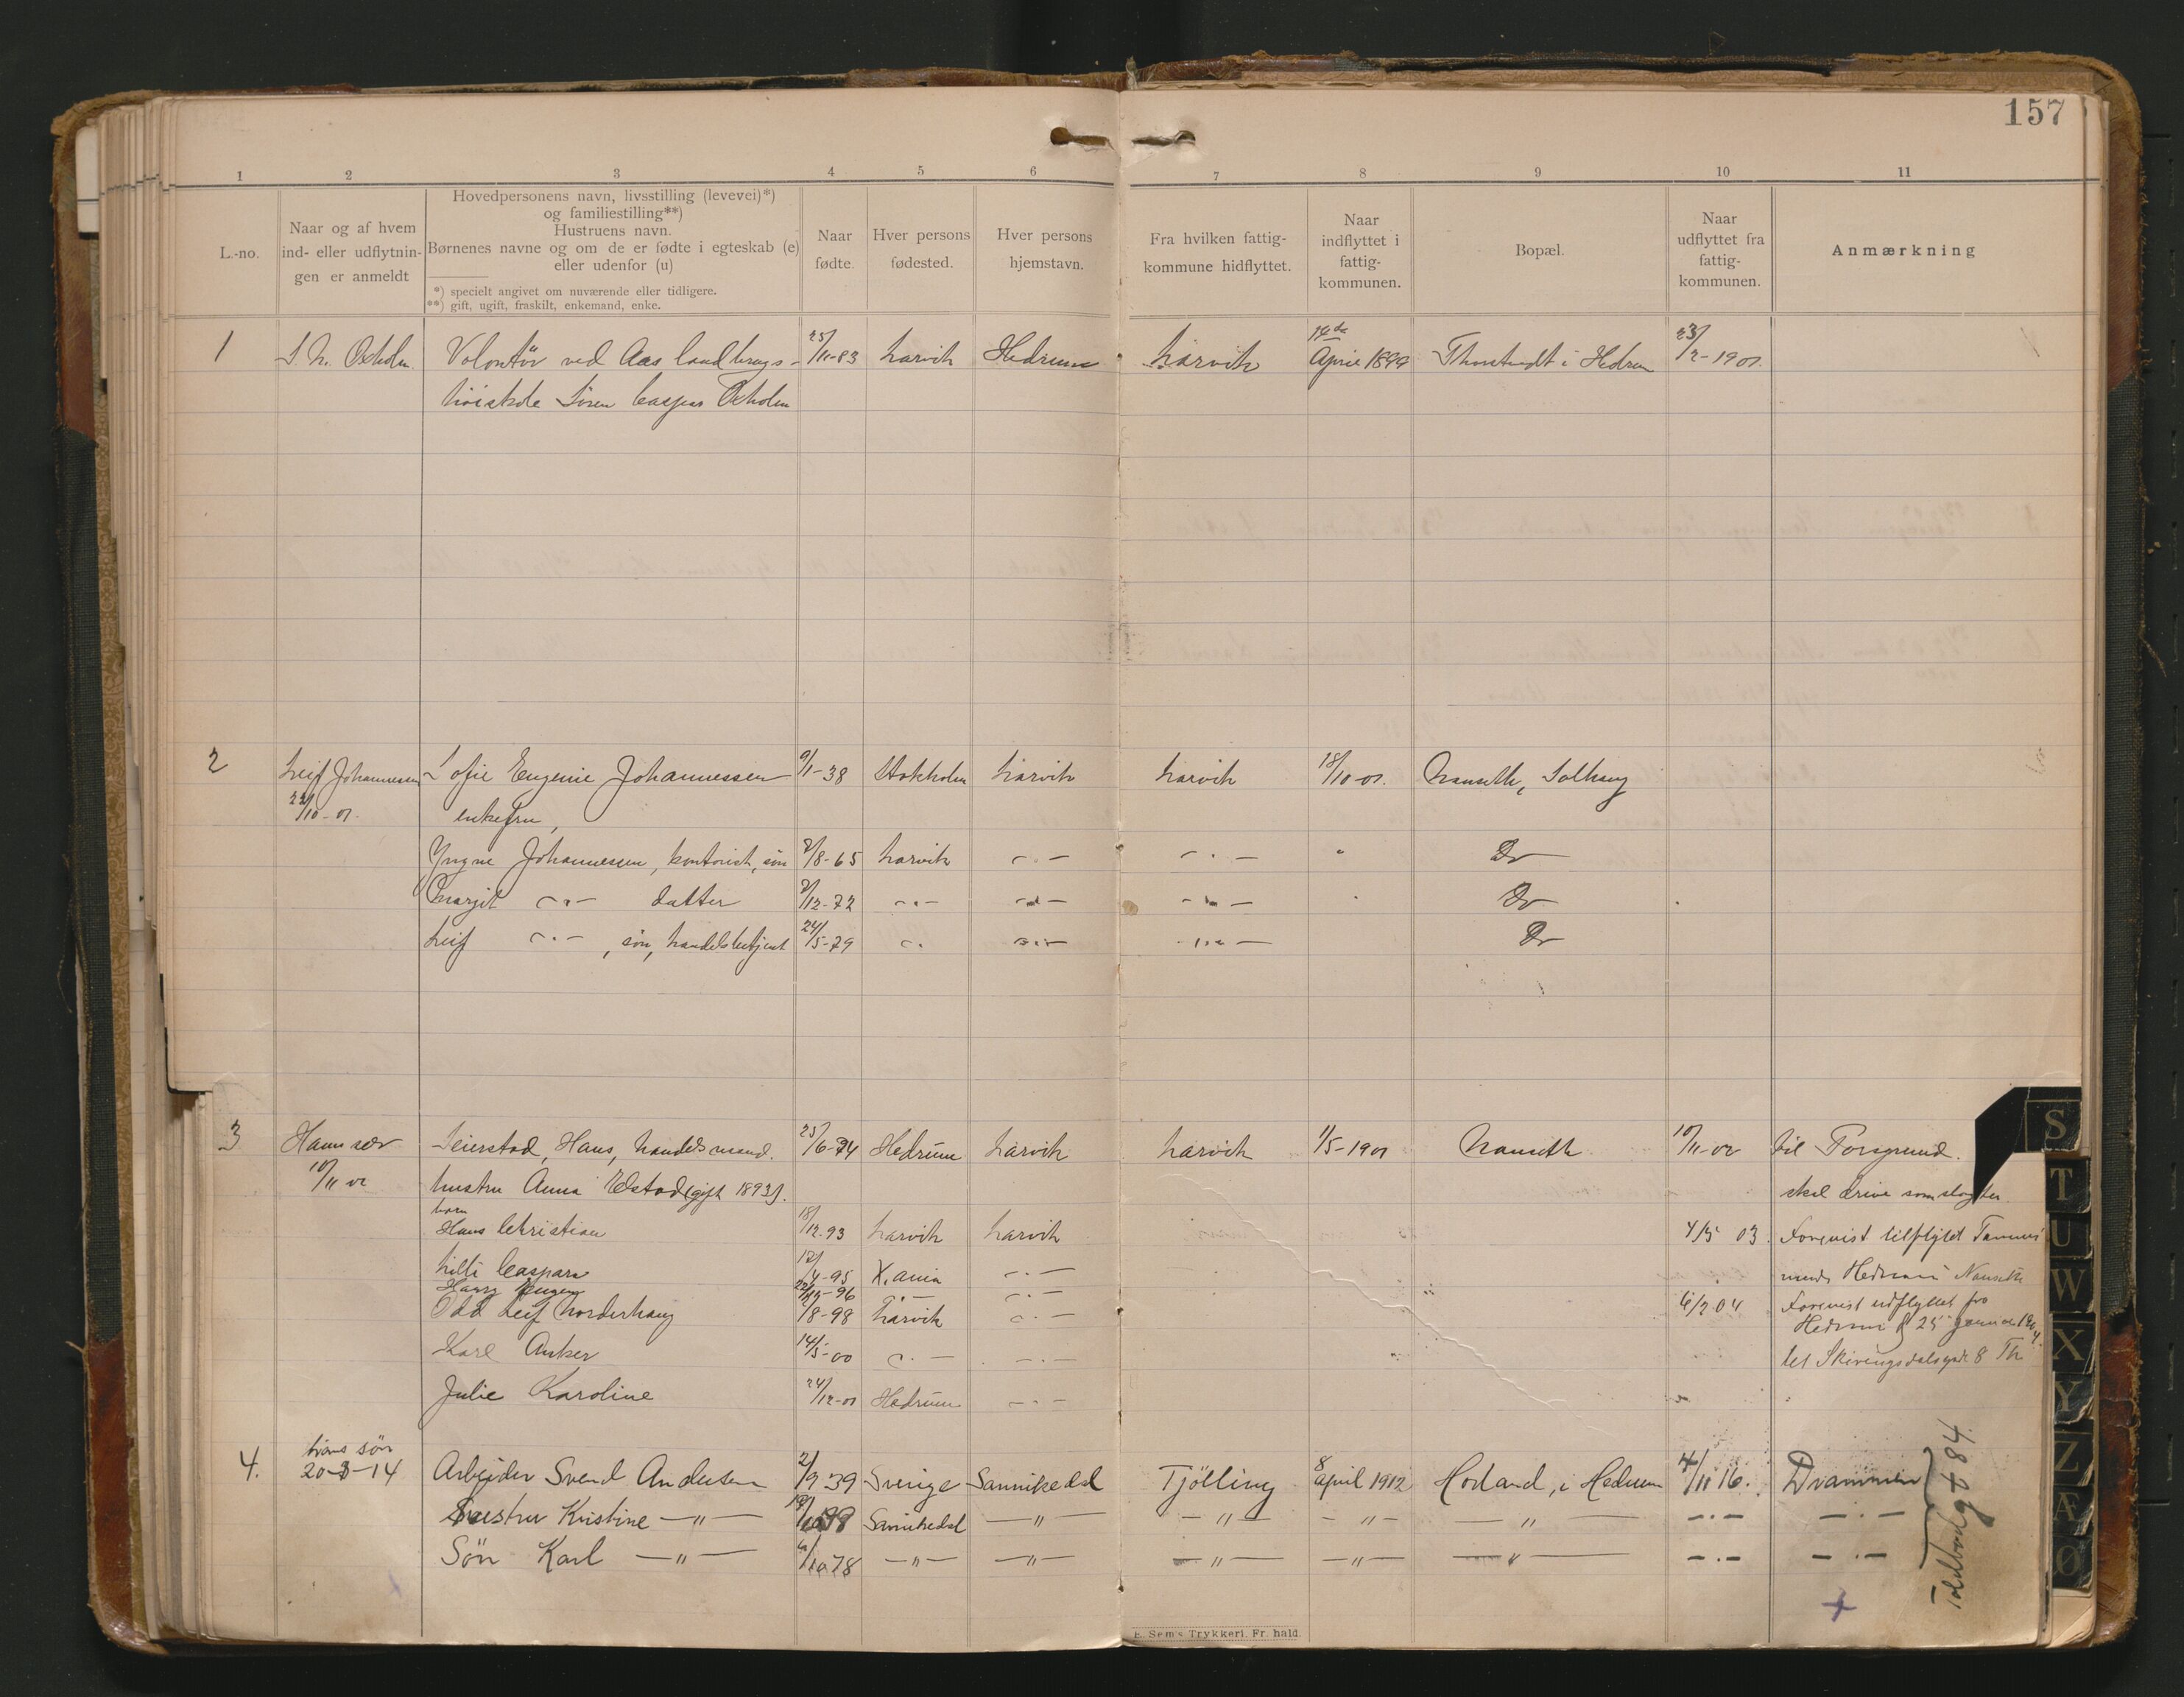 157
1 2 3 4 5 6 7 8 9 10 11
L.-no.
Naar og af hvem
ind- eller udflytnin-
gen er anmeldt
Hovedpersonens navn, livsstilling (levevei)*)
og familiestilling**)
Hustruens navn.
Børnenes navne og om de er fødte i egteskab (e)
eller udenfor (u)
*) specielt angivet om nuværende eller tidligere.
**) gift, ugift, fraskilt, enkemand, enke.
Naar
fødte.
Hver persons
fødested.
Hver persons
hjemstavn.
Fra hvilken fattig-
kommune hidflyttet.
Naar
indflyttet i
fattig-
kommunen.
Bopæl.
Naar
udflyttet fra
fattig-
kommunen.
Anmærkning
1 Volontör ved Aas landbrugs- 25/11-83 Larvik Hedrum Larvik 14de April 1899 i Hedrum 23/2-1901.
höiskole Sören Caspar Oxholm
2 Leif Johannessen Sofie Eugenie Johannessen 9/1-38 Stokholm Larvik Larvik 18/10-01. Nanseth, Solhaug
22/10-01. enkefru,
Yngve Johannessen, kontorist, sön 2/8-65 Larvik - " - - " - " Do
Margit - " - datter 3/12-72 - " - - " - - " - Do
Leif - " - , sön, handelsbetjent 24/5-79 - " - " - - " - Do
3 Hans Leierstad, Hans, handelsmand. 25/6-74 Hedrum Larvik Larvik 1/5-1901 Nanseth 10/11-02 til Porsgrund.
10/11 02 hustru Anna (gift 1893). skal drive som slagter
born
Hans Christian 18/12-93 Larvik Larvik 4/5 03. Forevist tilflyttet
Lilli Caspara 12/4-95 X.ania - " - Hedrum Nanseth
Harry -96 - " -
Odd Leif Norderhaug /8-98 Larvik - " - 6/2 04 Forevist udflyttet fra
Hedrum d. 25 januar 1904
Karl Anker 14/5-00 - " - - " - til Skiringsdalsgade 8
Julie Karoline 24/12-01 Hedrum - " -
4. hans sön
20-3-14 Arbeider Svend Andersen 2/9 39 Sverige Sannikedal Tjölling 8 april 1912 Hovland, i Hedrum 4/11 16. Drammen
Hustru Kristine - " - Sannikedal - " - - " - - " - - " - - " - - " -
Sön Karl - " - 6/10 78 - " - - " - - " - - " - - " - - " - - " -
Toldbodgt 84.
E. Sem's Trykkeri. Fr. hald.
S
T
U
W
X
Y
Z
Æ
Ø